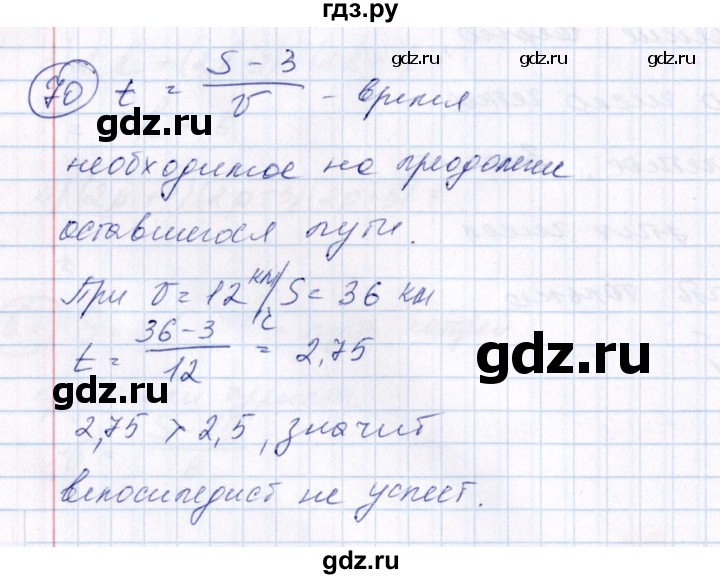 гдз.ру
70 t = (S - 3)/v - время
необходимое на преодоление
оставшегося пути.
При v = 12 км/ч S = 36 км
t = (36 - 3)/12 = 2,75
2,75 > 2,5, значит
велосипедист не успеет.
gdz.ru
gdz.ru
gdz.ru
gdz.ru
gdz.ru
gdz.ru
gdz.ru
gdz.ru